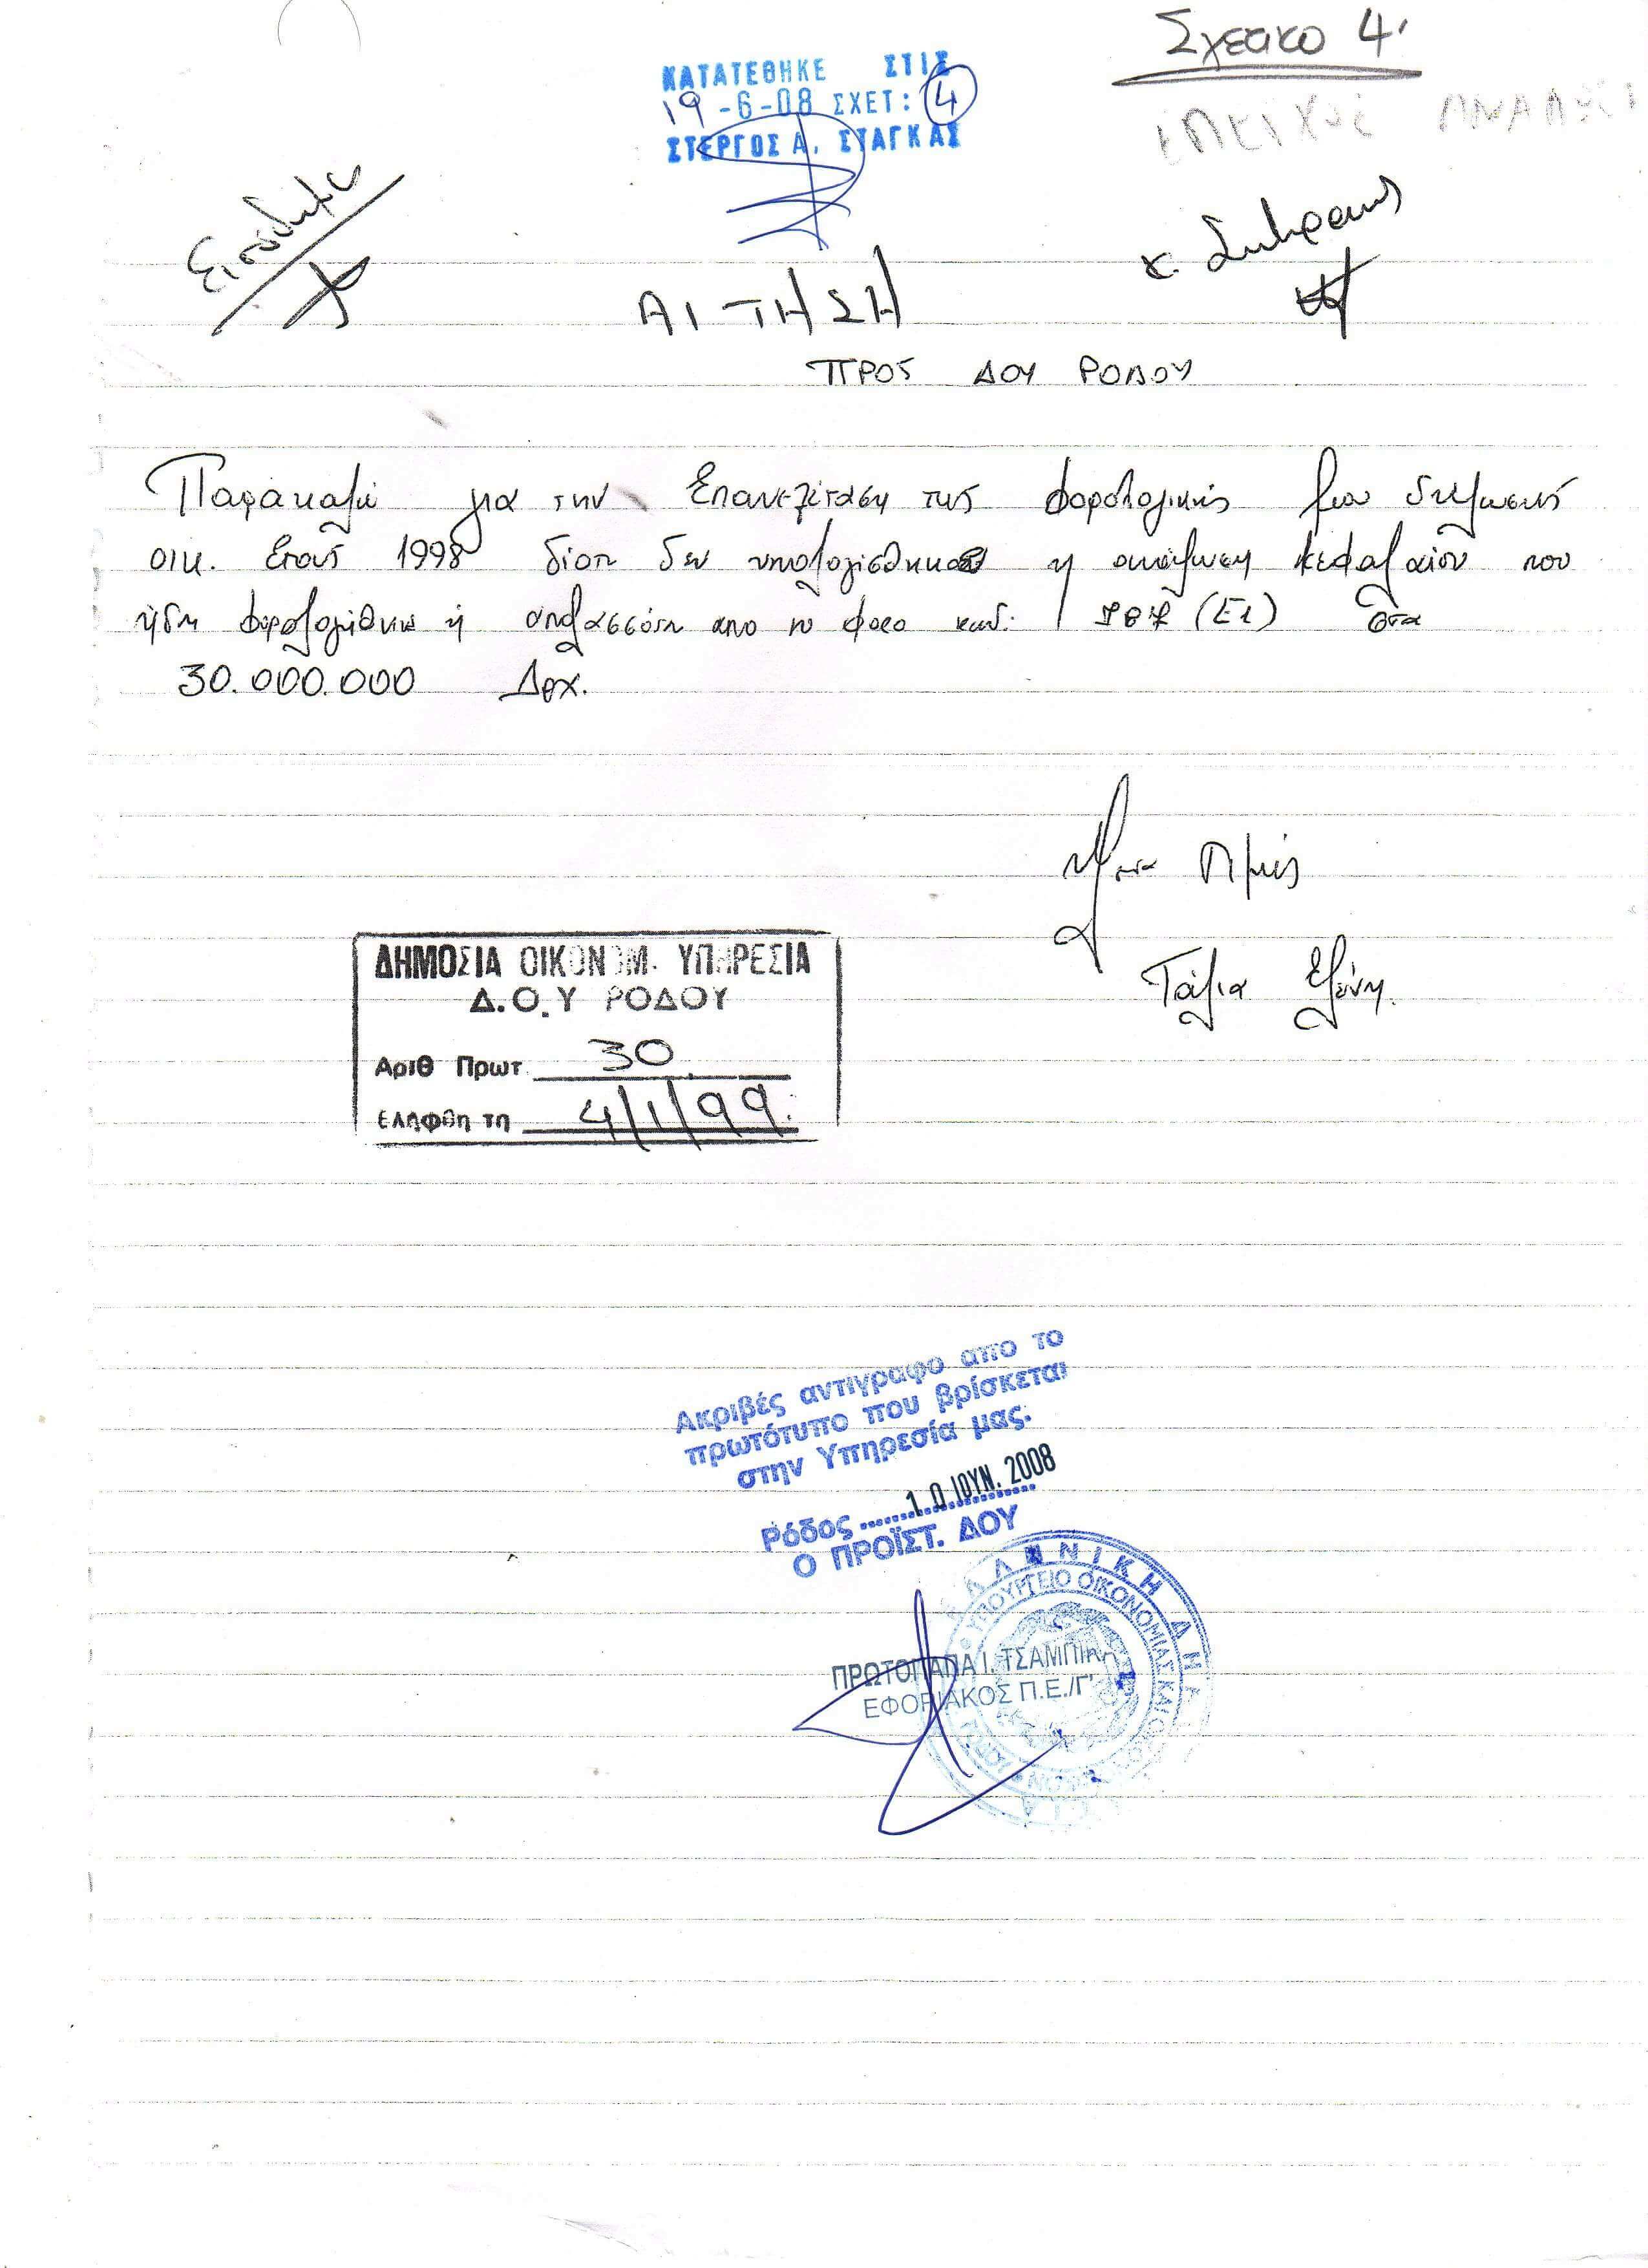 Σχετικο 4.
ΚΑΤΑΤΕΘΗΚΕ ΣΤΙΣ
19-6-08 ΣΧΕΤ: 4
ΣΤΕΡΓΟΣ Α. ΣΤΑΓΚΑΣ
Εισόδημα
κ.
ΑΙΤΗΣΗ
ΠΡΟΣ ΔΟΥ ΡΟΔΟΥ
Παρακαλώ για την Επανεξέταση της φορολογικής μου δηλωσεως
οικ. έτους 1998 διότι δεν υπολογίσθηκε η ανάλωση κεφαλαίου που
ήδη φορολογήθηκε ή απαλασσόταν απο το φορο κωδ: (Ε1) στα
30.000.000 Δρχ.
Μετα Τιμής
Τάλια Ελένη.
ΔΗΜΟΣΙΑ ΟΙΚΟΝΟΜ. ΥΠΗΡΕΣΙΑ
Δ.Ο.Υ ΡΟΔΟΥ
Αριθ Πρωτ. 30
Ελήφθη τη 4/1/99.
Ακριβές αντιγραφο απο το
πρωτότυπο που βρίσκεται
στην Υπηρεσία μας.
Ρόδος 10 ΙΟΥΝ. 2008
Ο ΠΡΟΪΣΤ. ΔΟΥ
ΕΛΛΗΝΙΚΗ ΔΗΜ
ΥΠΟΥΡΓΕΙΟ ΟΙΚΟΝΟΜΙΑΣ ΚΑΙ ΟΙΚΟΝΟΜΙΚΩΝ
ΠΡΩΤΟΠΑΠΑ Ι. ΤΣΑΜΠΙΚΑ
ΕΦΟΡΙΑΚΟΣ Π.Ε./Γ'